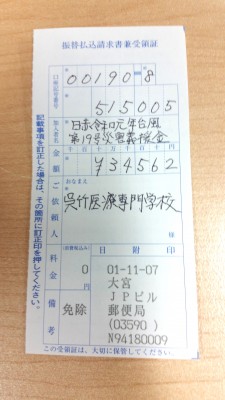 振替払込請求書兼受領証
口座記号番号
00190-8
515005
加入者名
日赤令和元年台風
第19号災害義援金
金額
千百十万千百十円
¥734562
ご依頼人
おなまえ
呉竹医療専門学校
様
料金
(消費税込み)
0
円
備考
免除
日附印
01-11-07
大宮
JPビル
郵便局
(03590)
N94180009
記載事項を訂正した場合は、その箇所に訂正印を押してください。
この受領証は、大切に保管してください。